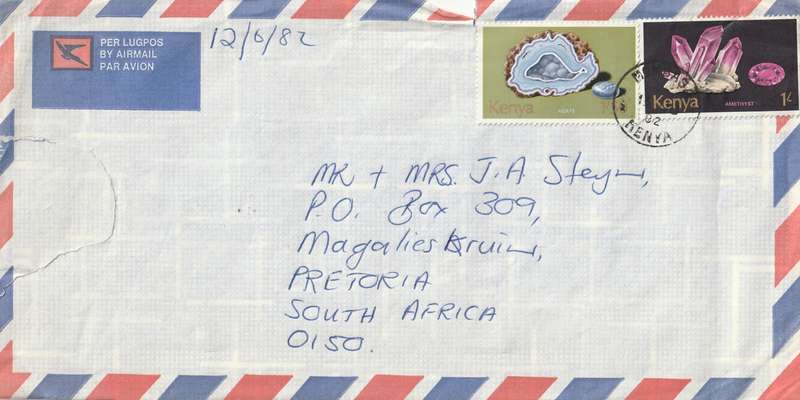 PER LUGPOS
BY AIRMAIL
PAR AVION
12/6/82
AGATE
Kenya
Kenya
AMETHYST
1/-
82
KENYA
MR + MRS. J.A Steyn,
P.O. Box 309,
Magalieskruin,
PRETORIA
SOUTH AFRICA
0150.